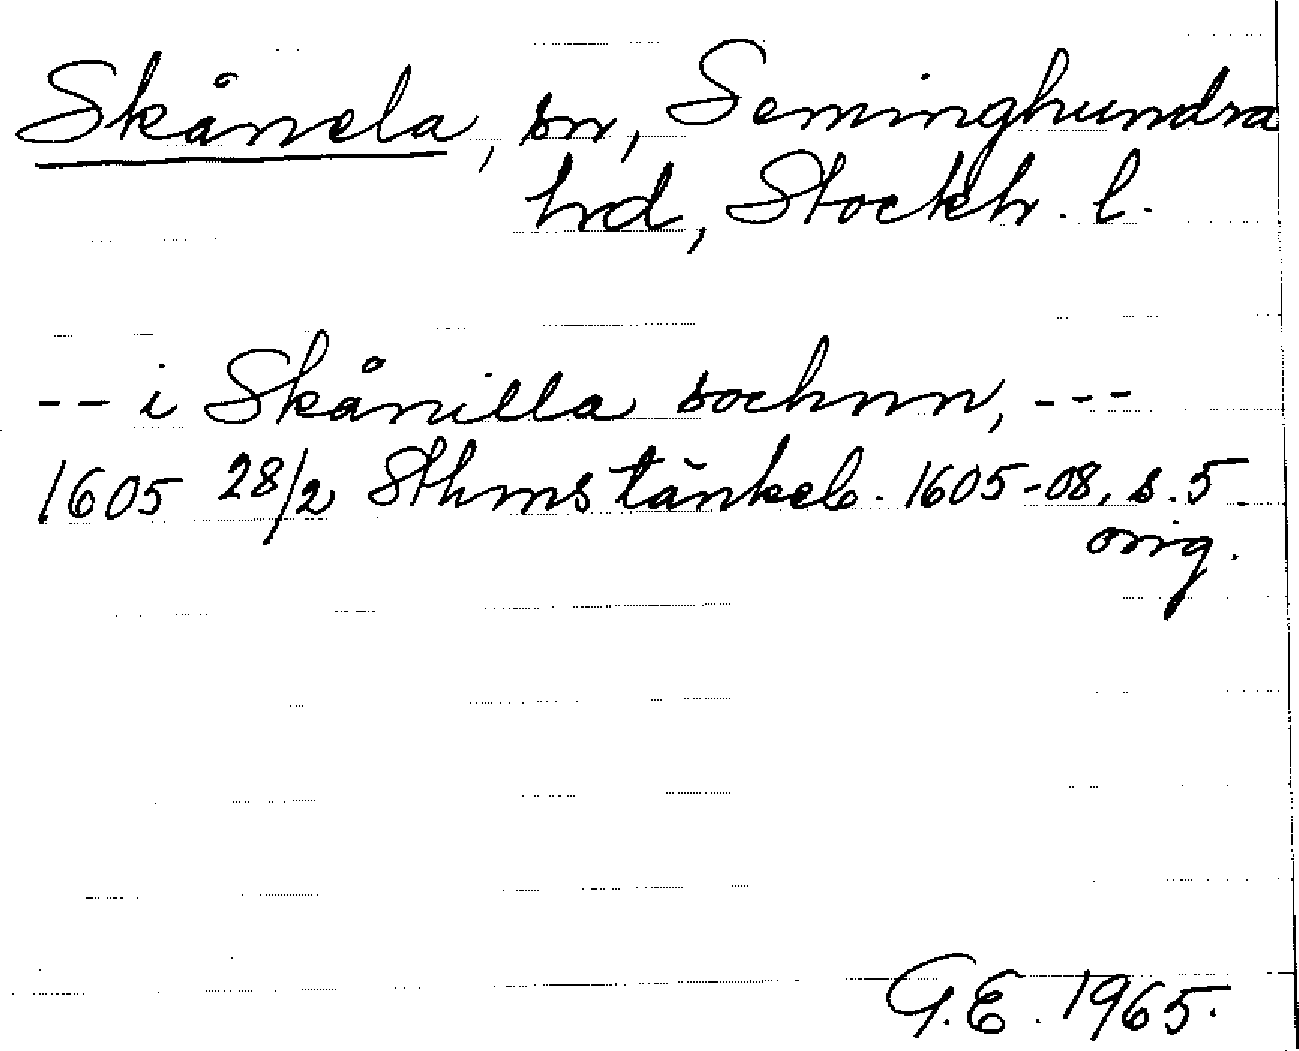 Skånela, sn, Seminghundra
hrd, Stockh. l.
-- i Skånilla sochnn, ---
1605 28/2 Sthms tänkeb. 1605-08, s. 5
orig.
G.E. 1965.